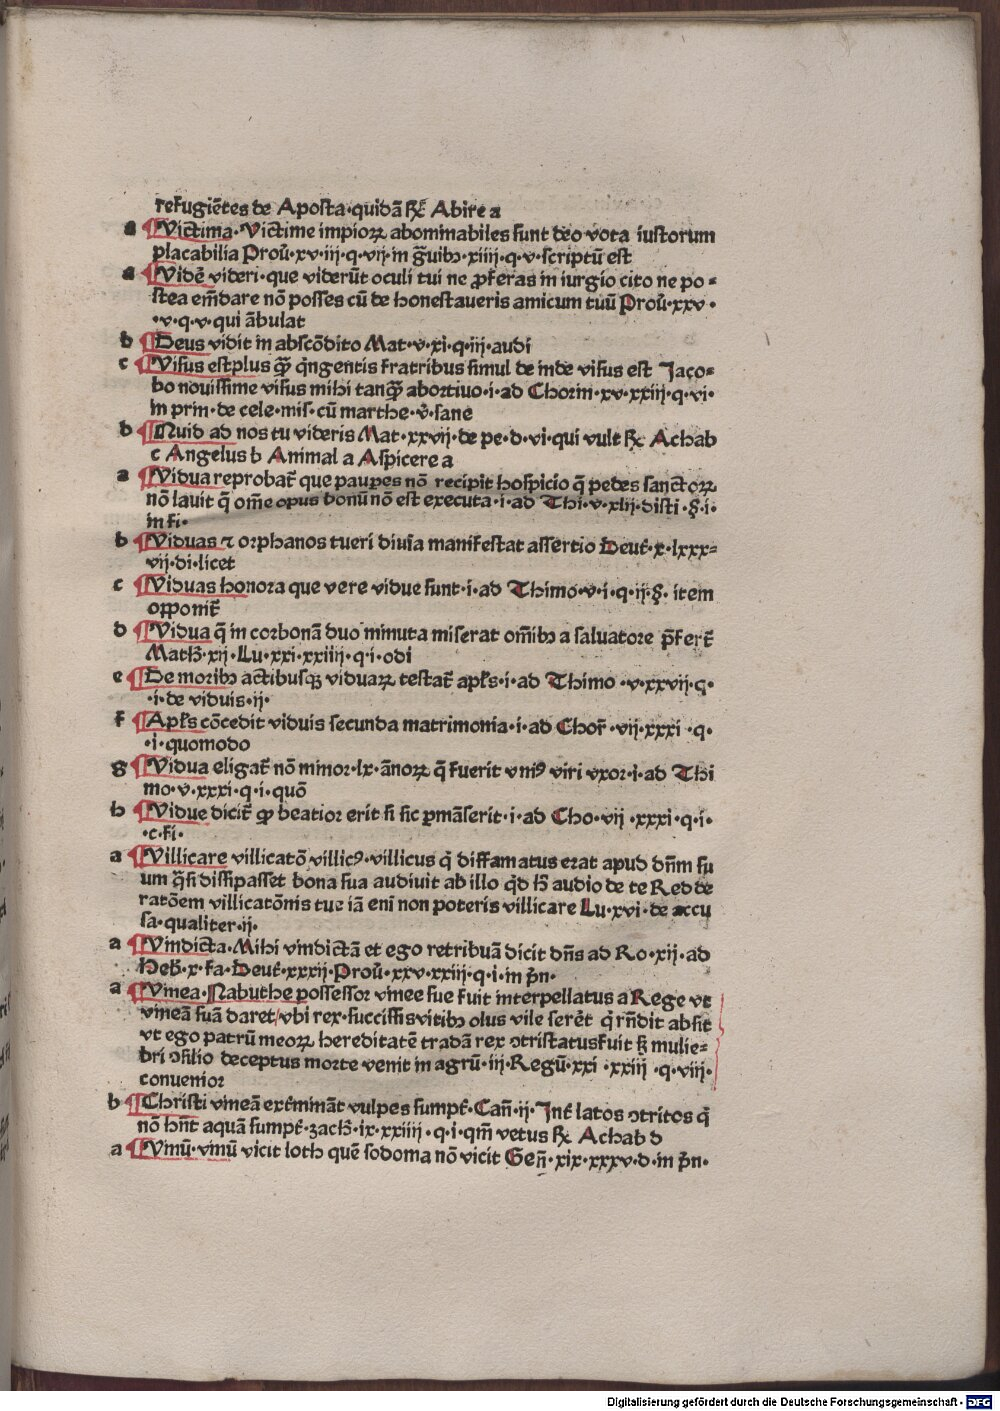 refugiētes de Aposta·quidā R̃ Abire a
a ¶Victima·Victime impioꝝ abominabiles sunt deo vota iustorum
placabilia Prou̾·xv·iij·q·vij·in g̃uibꝫ·xiiij·q·v·scriptū est
a ¶Vidē videri·que viderūt oculi tui ne ꝓferas in iurgio cito ne po-
stea em̄dare nō posses cū de honestaueris amicum tuū Prou̾·xxv·
·v·q·v·qui ābulat
b ¶Deus vidit in abscōdito Mat·v·xi·q·iij·audi
c ¶Visus est plus q̄ꝫ q̇ngentis fratribus simul de inde visus est Jaco-
bo nouissime visus mihi tanq̄ꝫ abortiuo·i·ad Chorin·xv·xxiij·q·vi·
in prin·de cele·mis·cū marthe·v̾·sane
b ¶Nuid ad nos tu videris Mat·xxvij·de pe·d·vi·qui vult R̃ Achab
c Angelus b Animal a Aspicere a
a ¶Vidua reprobat̾ que pauꝑes nō recipit hospicio q̄ pedes sanctoꝝ
nō lauit q̄ om̄e opus bonū nō est executa·i·ad Thi·v·xlij·disti·§·i·
in fi·
b ¶Viduas ⁊ orphanos tueri diuīa manifestat assertio Deut̾·x·lxxx-
vij·di·licet
c ¶Viduas honora que vere vidue sunt·i·ad Thimo·v·i·q·ij·§·item
opponit̾
d ¶Vidua q̄ in corbonā duo minuta miserat om̄ibꝫ a saluatore p̄fert̾
Math̾·xij·Lu·xxi·xxiiij·q·i·odi
e ¶De moribꝫ actibusqꝫ viduaꝝ testat̾ apl̄s·i·ad Thimo·v·xxvij·q·
·i·de viduis·ij·
f ¶Apl̄s cōcedit viduis secunda matrimonia·i·ad Chor̾·vij·xxxi·q·
·i·quomodo
g ¶Vidua eligat̾ nō minor·lx·ānoꝝ q̄ fuerit vniꝰ viri vxor·i·ad Thi
mo·v·xxxi·q·i·quō
h ¶Vidue dicit̾ ꝙ beatior erit si sic ꝑmāserit·i·ad Cho·vij·xxxi·q·i·
·c·fi·
a ¶Villicare villicatō villicꝰ·villicus q̇ diffamatus erat apud dn̄m su
um q̄si dissipasset bona sua audiuit ab illo q̇d h̄ audio de te Red de
ratōem villicatōnis tue iā eni non poteris villicare Lu·xvi·de accu
sa·qualiter·ij·
a ¶Vindicta·Mihi vindictā et ego retribuā dicit dn̄s ad Ro·xij·ad
Heb̾·x·fa·Deut̾·xxxij·Prou̾·xxv·xxiij·q·i·in p̄n·
a ¶Vinea·Nabuthe possessor vinee sue fuit interpellatus a Rege vt
vineā suā daret/vbi rex·succissis vitibꝫ olus vile serēt q̇ rn̄dit absit
vt ego patrū meoꝝ hereditatē tradā rex ↄtristatus fuit sꝫ mulie-
bri ↄsilio deceptus morte venit in agrū·iij·Regū·xxi·xxiij·q·viij·
convenior
b ¶Christi vineā ext̾mināt vulpes sumpt̾·Can̄·ij·Int̾ latos ↄtritos q̇
nō hn̄t aquā sumpt̾·zach̾·ix·xxiiij·q·i·qm̄ vetus R̃ Achab d
a ¶Vinū·vinū vicit loth quē sodoma nō vicit Gen̄·xix·xxxv·d·in p̄n·
Digitalisierung gefördert durch die Deutsche Forschungsgemeinschaft - DFG